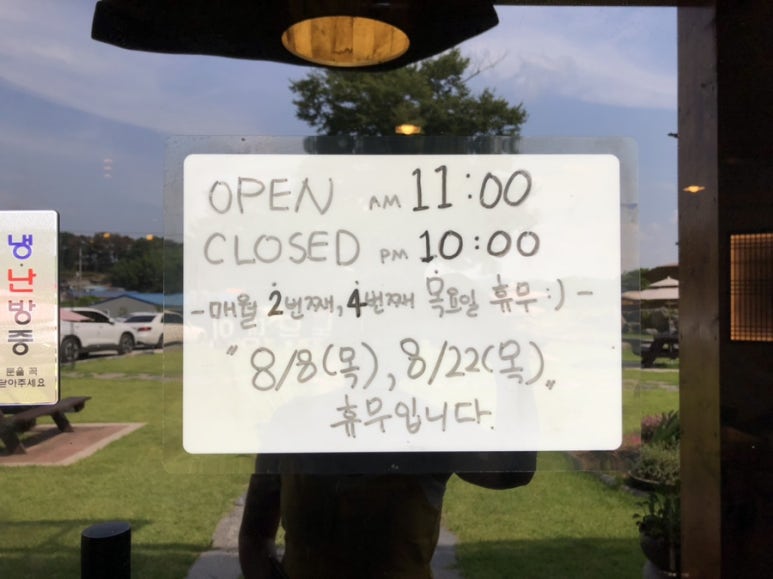 OPEN AM 11:00
CLOSED PM 10:00
- 매월 2번째, 4번째 목요일 휴무 :) -
" 8/8(목), 8/22(목) "
휴무입니다.
냉·난방중
문을 꼭
닫아주세요